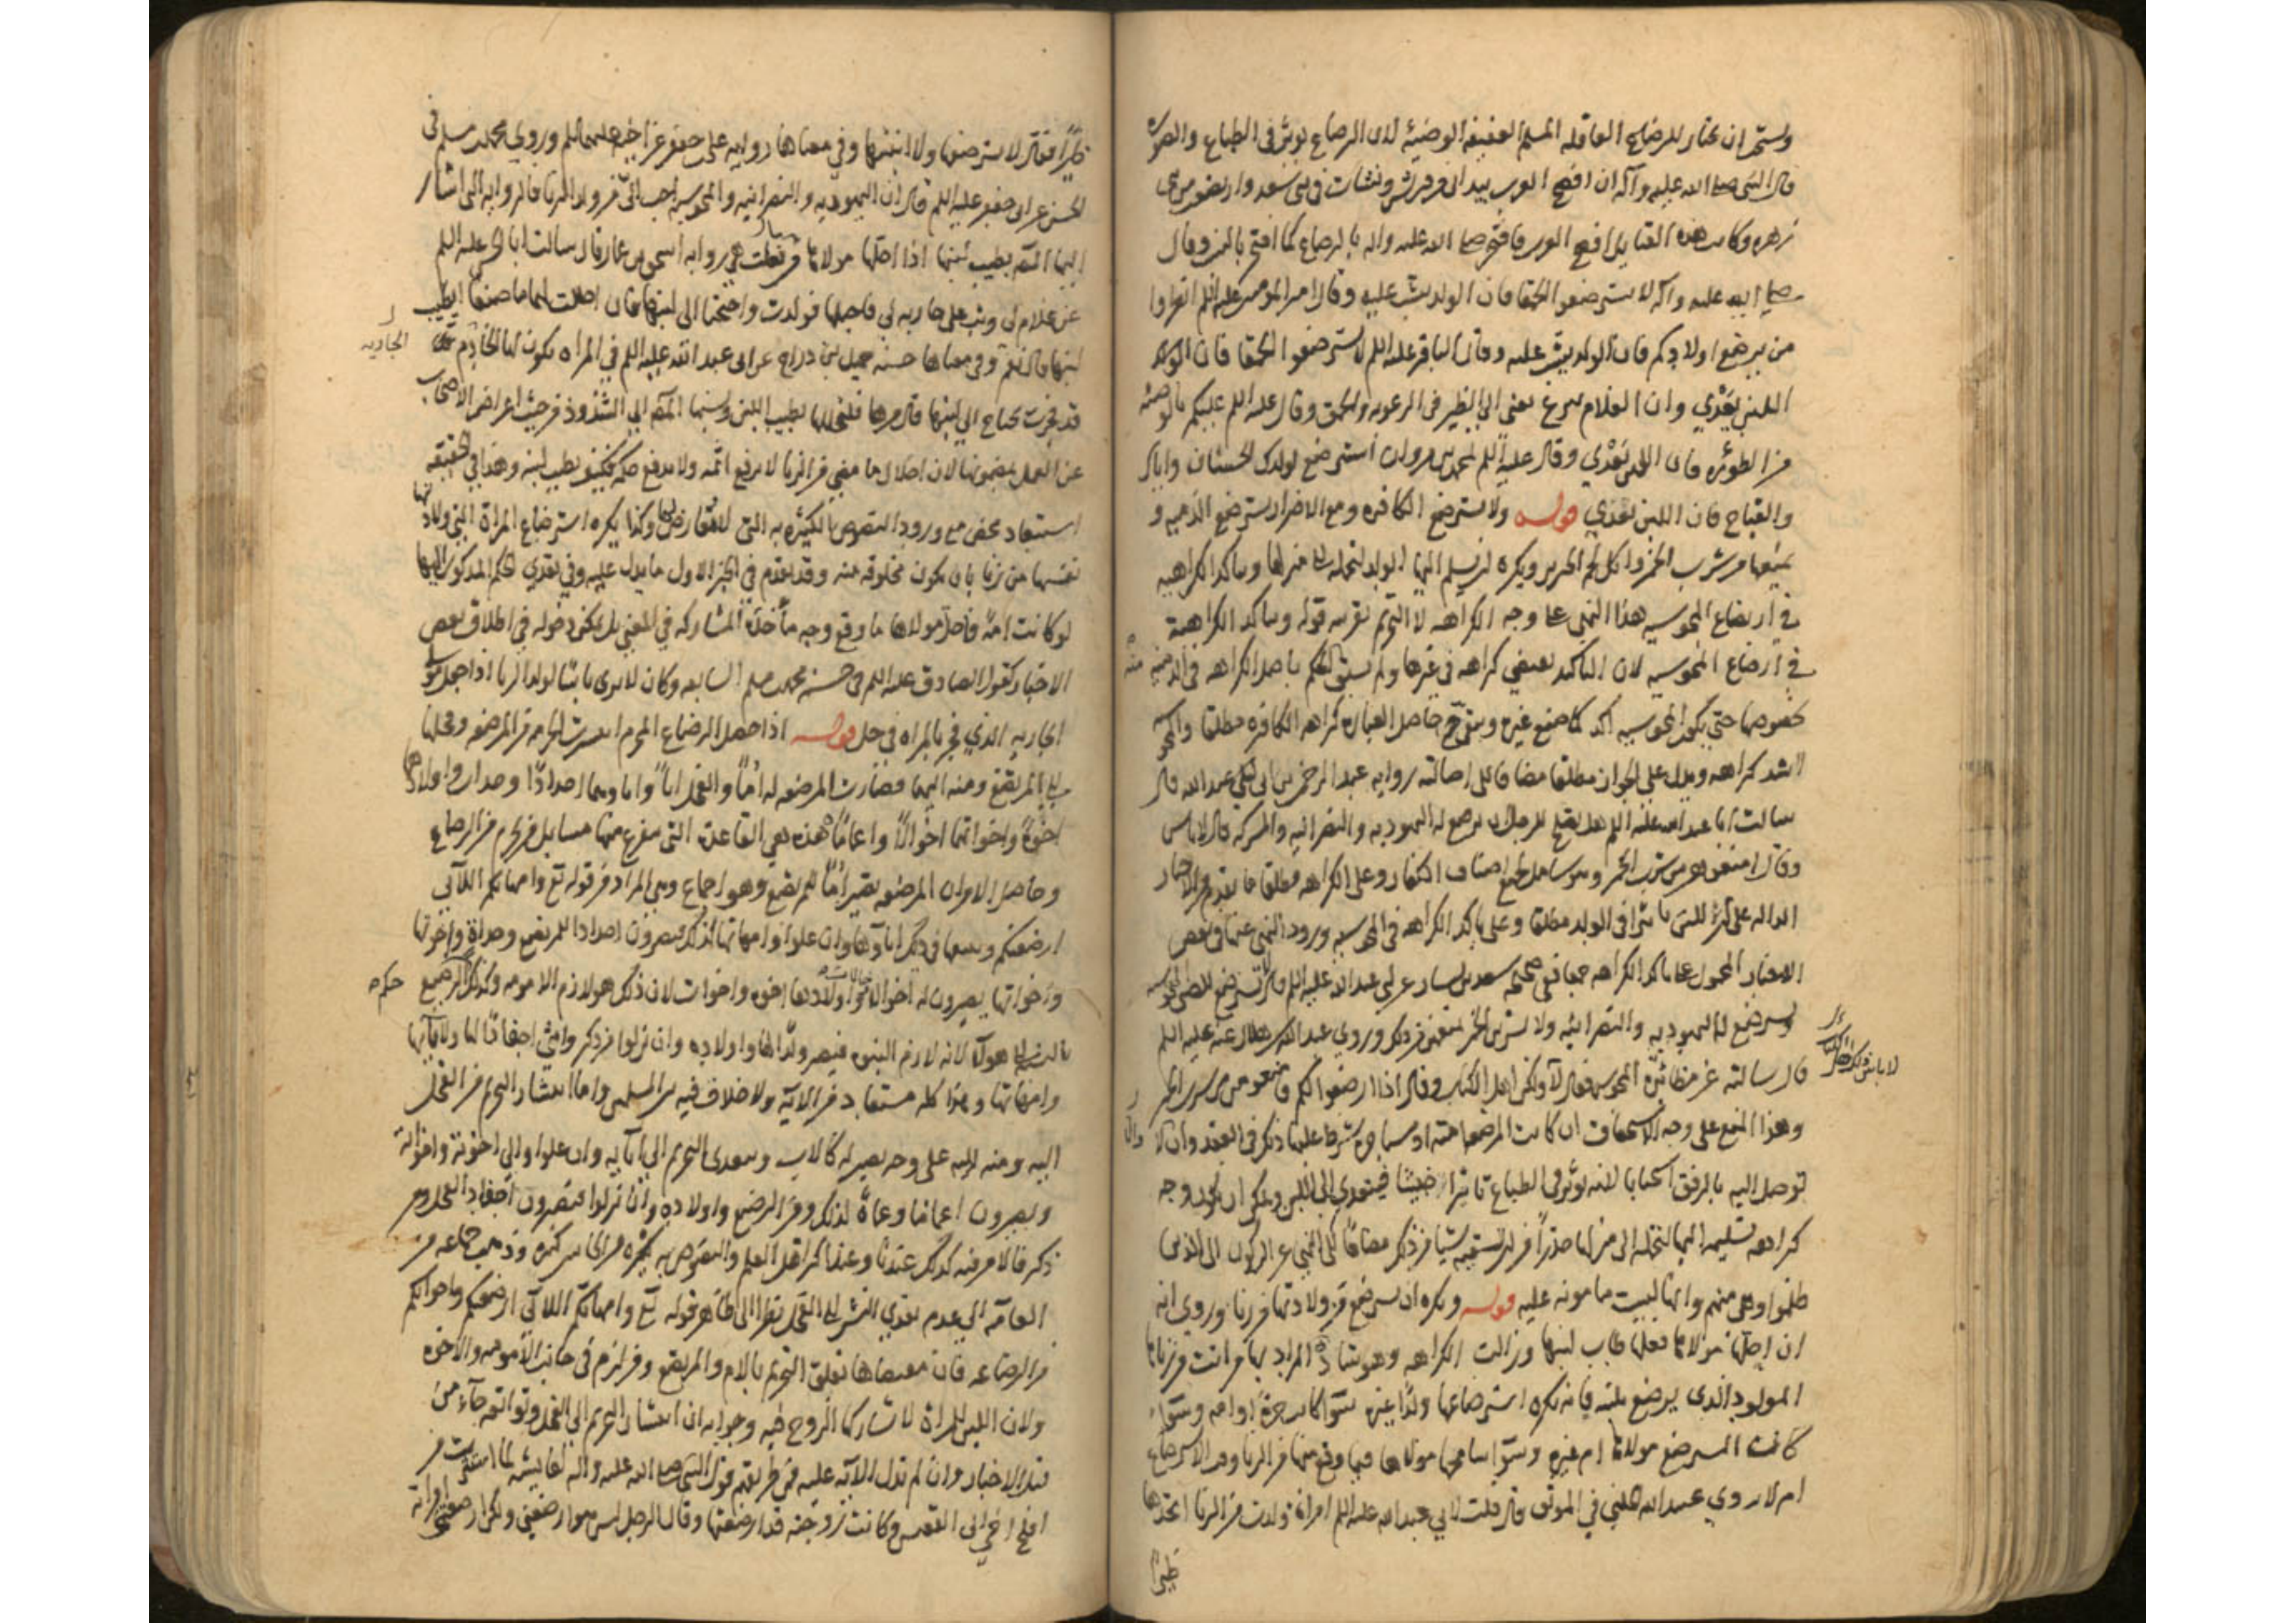 ويستحب ان يختار للرضاع العاقله المسلمه العفيفه الوضيئه لان الرضاع يوثر في الطباع والصوره
قال النبي صلى الله عليه وآله ان افصح العرب بيد اني من قريش ونشات في بني سعد وارتضعت من بني
زهره وكانت هذه القبايل افصح العرب فافتخر صلى الله عليه واله بالرضاع كما افتخر بالنسب وقال
صلى الله عليه وآله لا تسترضعوا الحمقا فان الولد يشب عليه وقال امير المومنين عليه السلم انظروا
من يرضع اولادكم فان الولد يشب عليه وقال الباقر عليه السلم لا تسترضعوا الحمقا فان
اللبن يعدي وان الغلام ينزع يعني الى الظير في الرعونه والحمق وقال عليه السلم عليكم بالوضئه
من الظوره فان اللبن يعدي وقال عليه السلم لمحمد بن مروان استرضع لولدك الحسان واياك
والقباح فان اللبن يعدي قوله ولا تسترضع الكافره ومع الاضرار تسترضع الذميه و
يمنعها من شرب الخمر واكل لحم الخنزير ويكره ان يسلم اليها الولد لتحمله الى منزلها ويتاكد الكراهيه
في ارتضاع المجوسيه هذا النهي على وجه الكراهه لا التحريم بقرينه قوله ويتاكد الكراهية
في ارضاع المجوسيه لان التاكيد يقتضي كراهه في غيرها ولم يسبق الحكم باصل الكراهه في الذميه
بخصوصها حتى يكون المجوسيه اكد كما صنع غيره ويتوجه حاصل العباره كراهه الكافره مطلقا
اشد كراهه ويدل على الجواز مطلقا مضافا الى اصالته روايه عبد الرحمن بن ابي عبد الله قال
سالت ابا عبد الله عليه السلم هل يصلح للرجل ان يرضع له اليهوديه والنصرانيه والمشركه قال لا باس
وقال امنعوهن من شرب الخمر وهو شامل لجميع اصناف الكفار وعلى الكراهه مطلقا ما تقدم من الاخبار
الداله على ان للبن تاثيرا في الولد مطلقا وعلى تاكد الكراهه في المجوسيه ورود النهي عنها في بعض
الاخبار المحمول على تاكد الكراهه جمعا ففي صحيحه سعيد بن يسار عن ابي عبد الله عليه السلم قال لا تسترضع للصبي المجوسيه
وتسترضع له اليهوديه والنصرانيه ولا يشربن الخمر يمنعن من ذلك وروي عبد الله بن هلال عنه عليه السلم
قال سالته عن مظائره المجوس فقال لا ولكن اهل الكتاب وقال اذا ارضعوا لكم فامنعوهن من شرب الخمر
وهذا المنع على وجه الاستحقاق ان كانت المرضعه امته او مستاجره شرط عليها ذلك في العقد والا
توصل اليه بالرفق استحبابا لانه يوثر في الطباع تاثيرا خبيثا فيتعدى الى اللبن ويمكن ان يكون وجه
كراهه تسليمه اليها لتحمله الى منزلها حذرا من ان تسقيه شيا من ذلك مضافا الى النهي عن الركون الى الذين
ظلموا وهي منهم وانها ليست مامونه عليه قوله ويكره ان يسترضع من ولادتها من زنا وروي انه
ان احلها مولاها فعلها طاب لبنها وزالت الكراهه وهو شاذ المراد بها من اتت من زناها
المولود الذي يرضع بلبنه فانه يكره استرضاعها ولدا غيره سوا كانت حرة او امه وسواء
كانت المسترضع مولاها ام غيره وسوا سامحها مولاها فيما وقع منها من الزنا وقت الاسترضاع
ام لا روي عبيد الله الحلبي في الموثق قال قلت لابي عبد الله عليه السلم امراة ولدت من الزنا اتخذها
ظيرا
ظيرا فقال لا تسترضعها ولا ابنتها وفي معناها روايه علي بن جعفر عن اخيه عليهما السلم وروي محمد بن مسلم في
الحسن عن ابي جعفر عليه السلم قال لبن اليهوديه والنصرانيه والمجوسيه احب الي من ولد الزنا والروايه التي اشار
اليها المصه بطيب لبنها اذا احلها مولاها هي روايه اسحق بن عمار قال سالت ابا الحسن عليه السلم
عن غلام لي وثب على جاريه لي فاحبلها فولدت واحتجنا الى لبنها فان احللت لهما ما صنعا ايطيب
لبنها قال نعم وفي معناها حسنه جميل بن دراج عن ابي عبد الله عليه السلم في المراه يكون لها الخادم
الجاريه
قد فجرت يحتاج الى لبنها قال مرها فلتحللها يطيب اللبن ونسبها المصه الى الشذوذ من حيث اعراض الاصحاب
عن العمل بمضمونها لان احلال ما مضى من الزنا لا يرفع اثمه ولا يدفع حكمه فكيف يطيب لبنه وهذا في الحقيقه
استبعاد محض مع ورود النصوص الكثيره به التي لا معارض لها وكذا يكره استرضاع المراة التي ولادتها
نفسها من زنا بان يكون مخلوقه منه وقد تقدم في الخبر الاول ما يدل عليه وفي تعدي الحكم المذكور اليها
لو كانت امه فاحل مولاها ما وقع وجه ماخذه المشاركه في المعنى بل يمكن دخوله في اطلاق بعض
الاخبار كقول الصادق عليه السلم في حسنه محمد بن مسلم السابقه وكان لا يرى باسا بولد الزنا اذا جعل مولى
الجاريه الذي فجر بالمراه في حل قوله اذا حصل الرضاع المحرم انتشرت الحرمه من المرضعه وفحلها
الى المرتضع ومنه اليهما فصارت المرضعه له اما والفحل ابا واباوهما اجدادا وجدات واولادهما
اخوة واخواتهما اخوالا واعماما هذه هي القاعدة التي يتفرع عنها مسايل من يحرم من الرضاع
وحاصل الامر ان المرضعه يصير اما للمرتضع وهو اجماع وهي المراد من قوله تع وامهاتكم اللاتي
ارضعنكم ويتبعها في ذلك اباؤها وان علوا وامهاتها كذلك فيصيرون اجدادا للمرتضع وجدات واخوتها
واخواتها يصيرون له اخوالا وخالات واولادها اخوه واخوات لان ذلك هو لازم الامومه وكذلك الرضيع
حكم
بالنسبه الى هولاء لانه لازم البنوه فيصير ولدا لها واولاده وان نزلوا من ذكر وانثى احفادا لها ولابائها
وامهاتها وهذا كله مستفاد من الاية ولا خلاف فيه بين المسلمين واما انتشار التحريم من الفحل
اليه ومنه اليه على وجه يصير له كالاب ويتعدى التحريم الى ابائه وان علوا والى اخوته واخواته
ويصيرون اعماما وعمات لذلك ومن الرضيع واولاده وان نزلوا فيصيرون احفاد الفحل ومن
ذكر فالامر فيه كذلك عندنا وعند اكثر اهل العلم والنصوص به كثيره من الجانبين كثيره وذهب جماعه من
العامه الى عدم تعدي النشر الى الفحل نظرا الى ظاهر قوله تع وامهاتكم اللاتي ارضعنكم واخواتكم
من الرضاعه فان مقتضاها تعلق التحريم بالام والمرتضع ومن لزم في جانب الامومه والاخوه
ولان اللبن للمراة لا يشاركها الزوج فيه وجوابه ان انتشار التحريم الى الفحل وتوابعه جاء من
قبل الاخبار وان لم تدل الاية عليه فمن طريقهم قول النبي صلى الله عليه واله لعايشه لما استترت من
افلح اخي ابي القعيس وكانت زوجته قد ارضعتها وقالت الرجل ليس هو ارضعني ولكن ارضعتني امراته